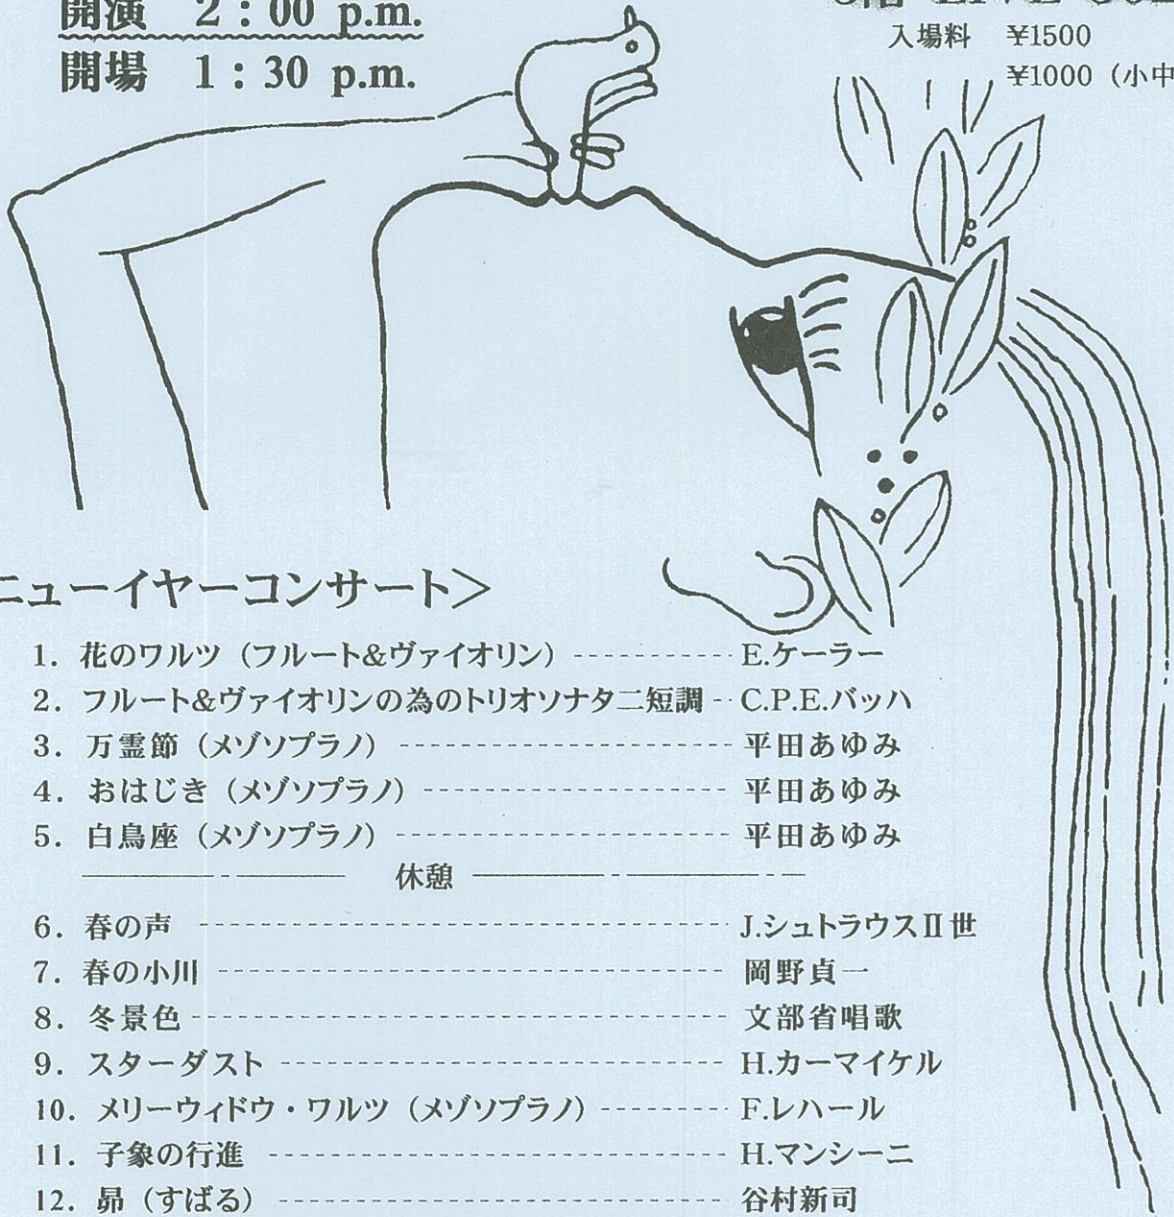 開演 2:00 p.m.
開場 1:30 p.m.
入場料 ¥1500
¥1000 (小中
ニューイヤーコンサート>
1. 花のワルツ (フルート&ヴァイオリン) ----------- E.ケーラー
2. フルート&ヴァイオリンの為のトリオソナタ二短調 -- C.P.E.バッハ
3. 万霊節 (メゾソプラノ) ---------------------- 平田あゆみ
4. おはじき (メゾソプラノ) -------------------- 平田あゆみ
5. 白鳥座 (メゾソプラノ) ---------------------- 平田あゆみ
休憩
6. 春の声 ----------------------------------- J.シュトラウスⅡ世
7. 春の小川 --------------------------------- 岡野貞一
8. 冬景色 ----------------------------------- 文部省唱歌
9. スターダスト ----------------------------- H.カーマイケル
10. メリーウィドウ・ワルツ (メゾソプラノ) -------- F.レハール
11. 子象の行進 ------------------------------ H.マンシーニ
12. 昴 (すばる) ----------------------------- 谷村新司